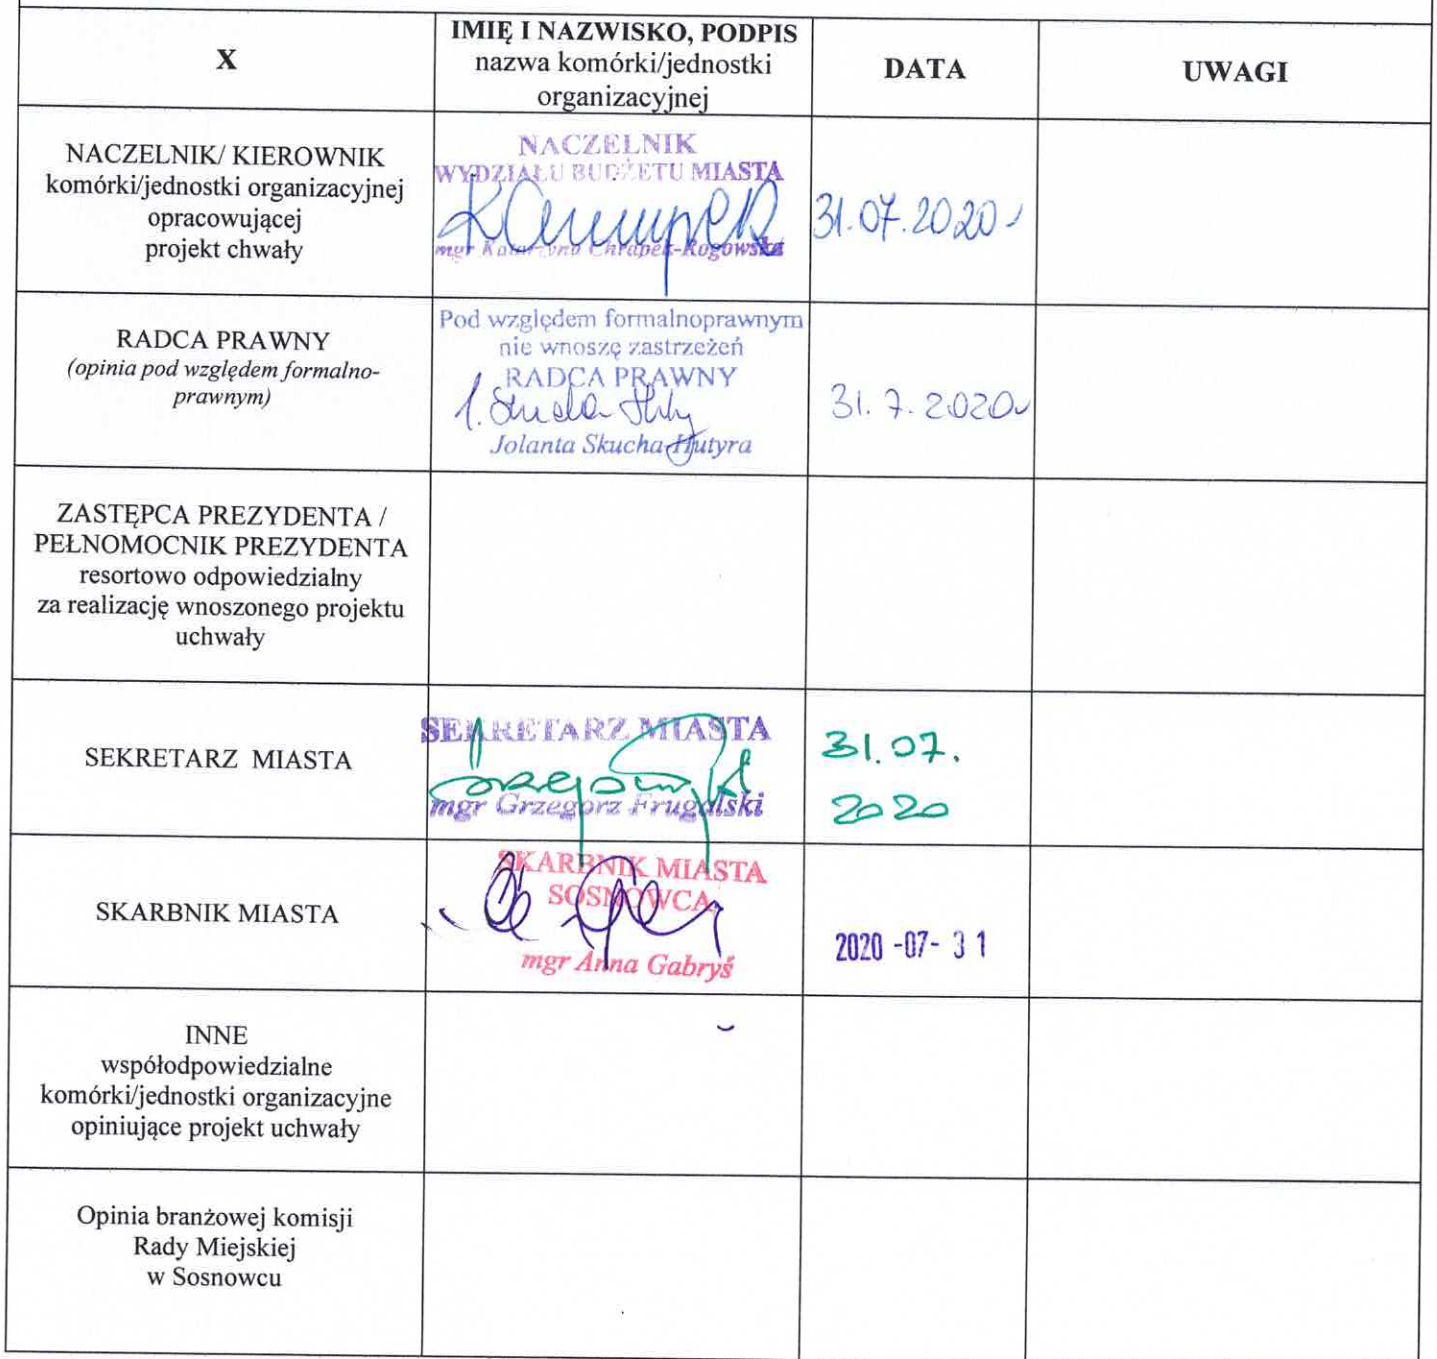 X
IMIĘ I NAZWISKO, PODPIS
nazwa komórki/jednostki
organizacyjnej
DATA
UWAGI
NACZELNIK/ KIEROWNIK
komórki/jednostki organizacyjnej
opracowującej
projekt chwały
NACZELNIK
WYDZIAŁU BUDŻETU MIASTA
mgr Katarzyna Chrapek-Rogowska
31.07.2020
RADCA PRAWNY
(opinia pod względem formalno-
prawnym)
Pod względem formalnoprawnym
nie wnoszę zastrzeżeń
RADCA PRAWNY
Jolanta Skucha-Hutyra
31.7.2020
ZASTĘPCA PREZYDENTA /
PEŁNOMOCNIK PREZYDENTA
resortowo odpowiedzialny
za realizację wnoszonego projektu
uchwały
SEKRETARZ MIASTA
SEKRETARZ MIASTA
mgr Grzegorz Frugalski
31.07.
2020
SKARBNIK MIASTA
SKARBNIK MIASTA
SOSNOWCA
mgr Anna Gabryś
2020 -07- 31
INNE
współodpowiedzialne
komórki/jednostki organizacyjne
opiniujące projekt uchwały
Opinia branżowej komisji
Rady Miejskiej
w Sosnowcu